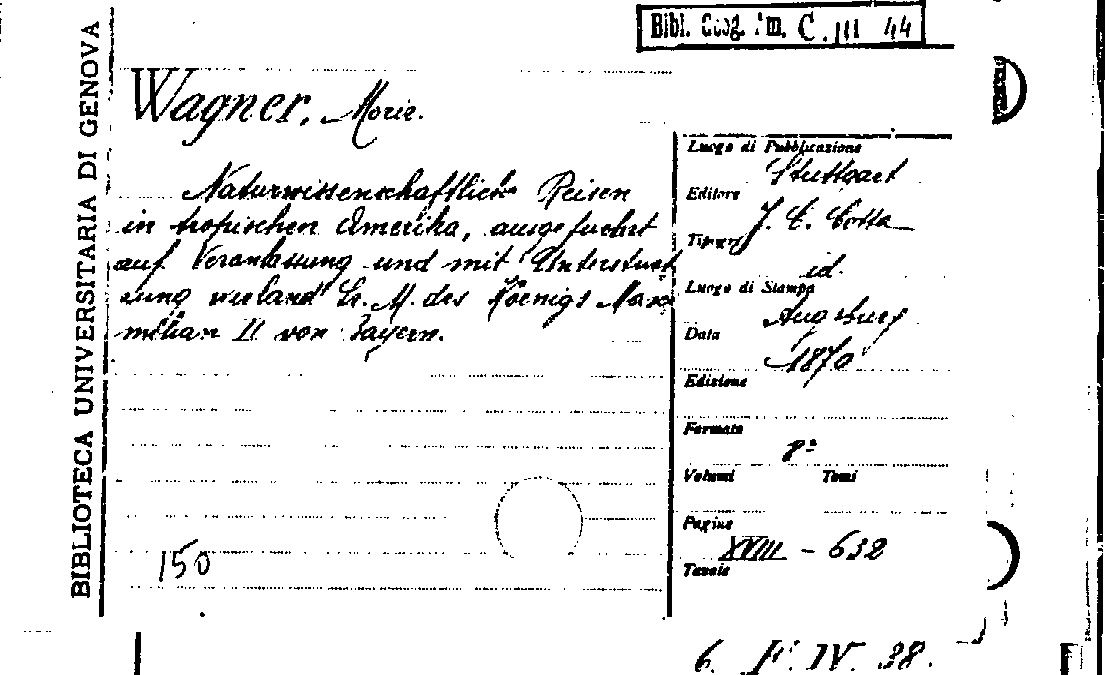 Bibl. Geog. Im. C. III 44
BIBLIOTECA UNIVERSITARIA DI GENOVA
Wagner, Moriz.
Naturwissenschaftliche Reisen
in tropischen Amerika, ausgefuehrt
auf Veranlassung und mit Unterstuet
zung weiland Sr. M. des Koenigs Maxi
milian II von Bayern.
150
Luogo di Pubblicazione
Stuttgart
Editore
J. C. Cotta
Tipogr.
id.
Luogo di Stampa
Augsburg
Data
1870
Edizione
Formato
8°
Volumi Tomi
Pagine
XVIII - 632
Tavole
6. F. IV. 38.